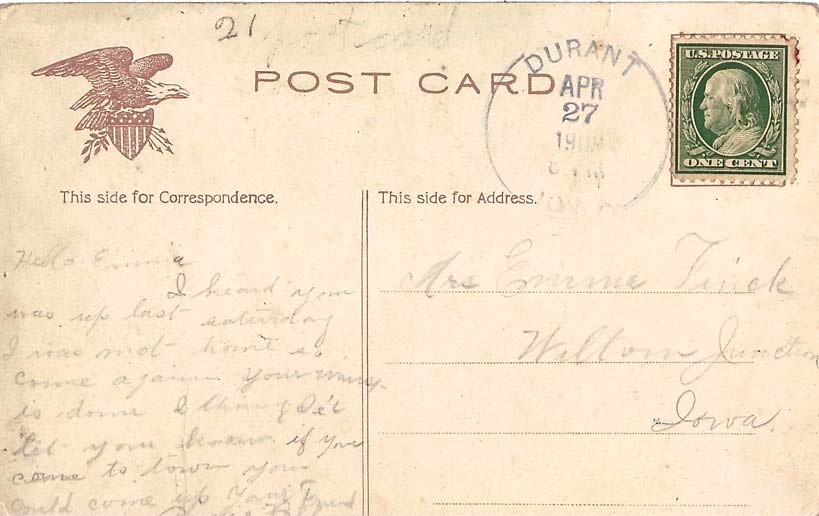 21 post card
POST CARD
DURANT
APR
27
190
IOWA
U.S. POSTAGE
ONE CENT
This side for Correspondence.
This side for Address.
Hello Emma
I heard you
was up last saturday
I was not home so
come again. Your
is done I
let you know if you
come to town you
could come up Your Friend
Mrs Emma Finck
Wilton Junction
Iowa.